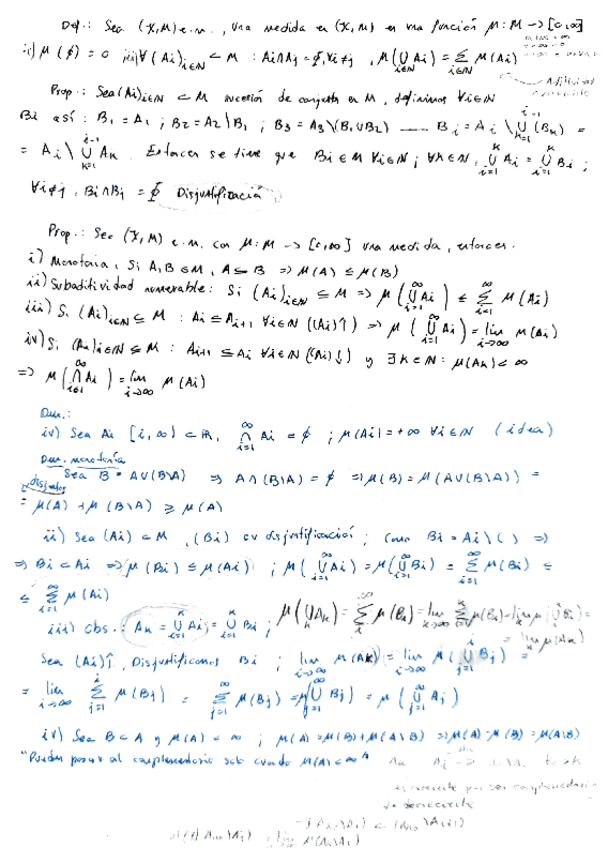 Def.: Sea (X,M) e.m., una medida en (X,M) es una función μ: M → [0,∞]
i) μ(∅) = 0 ii) ∀ (Ai)i∈N ⊂ M : Ai∩Aj = ∅, ∀i≠j, μ(⋃i∈N Ai) = ∑i∈N μ(Ai)
Aditividad
Prop.: Sea (Ai)i∈N ⊂ M sucesión de conjuntos en M, definimos ∀i∈N
Bi así: B1 = A1 ; B2 = A2\B1 ; B3 = A3\(B1∪B2) ___ Bi = Ai \ ⋃k=1^i-1 (Bk) =
= Ai \ ⋃k=1^i-1 Ak. Entonces se tiene que Bi∈M ∀i∈N ; ∀k∈N, ⋃i=1^k Ai = ⋃i=1^k Bi ;
∀i≠j, Bi∩Bj = ∅ Disjuntificación
Prop.: Sea (X,M) e.m. con μ: M → [0,∞] una medida, entonces.
i) Monotonia, Si A,B ∈ M, A ⊆ B ⇒ μ(A) ≤ μ(B)
ii) Subaditividad numerable: Si (Ai)i∈N ⊆ M ⇒ μ(⋃i=1^∞ Ai) ≤ ∑i=1^∞ μ(Ai)
iii) Si (Ai)i∈N ⊆ M : Ai ⊆ Ai+1 ∀i∈N ((Ai)↑) ⇒ μ(⋃i=1^∞ Ai) = lim i→∞ μ(Ai)
iv) Si (Ai)i∈N ⊆ M : Ai+1 ⊆ Ai ∀i∈N ((Ai)↓) y ∃k∈N : μ(Ak) < ∞
⇒ μ(⋂i=1^∞ Ai) = lim i→∞ μ(Ai)
Dem.:
iv) Sea Ai [i,∞) ⊂ R, ⋂i=1^∞ Ai = ∅ ; μ(Ai) = +∞ ∀i∈N (idea)
Dem. monotonía
Sea B = A∪(B\A) ⇒ A∩(B\A) = ∅ ⇒ μ(B) = μ(A∪(B\A)) =
disjuntos
= μ(A) + μ(B\A) ≥ μ(A)
ii) Sea (Ai) ⊂ M, (Bi) su disjuntificación ; Como Bi = Ai\( ) ⇒
⇒ Bi ⊂ Ai ⇒ μ(Bi) ≤ μ(Ai) ; μ(⋃i=1^∞ Ai) = μ(⋃i=1^∞ Bi) = ∑i=1^∞ μ(Bi) ≤
≤ ∑i=1^∞ μ(Ai)
iii) obs.: Ak = ⋃i=1^k Ai = ⋃i=1^k Bi ; μ(⋃k Ak) = ∑i μ(Bi) = lim k→∞ ∑i=1^k μ(Bi) = lim μ(⋃ Bi) =
= lim μ(Ak)
Sea (Ai)↑, Disjuntificamos Bi ; lim i→∞ μ(Ak) = lim i→∞ μ(⋃j=1^i Bj) =
= lim i→∞ ∑j=1^i μ(Bj) = ∑j=1^∞ μ(Bj) = μ(⋃j=1^∞ Bj) = μ(⋃j=1^∞ Aj)
iv) Sea B ⊂ A y μ(A) < ∞ ; μ(A) = μ(B) + μ(A\B) ⇒ μ(A) - μ(B) = μ(A\B)
"Puedes pasar al complementario solo cuando μ(A) < ∞"